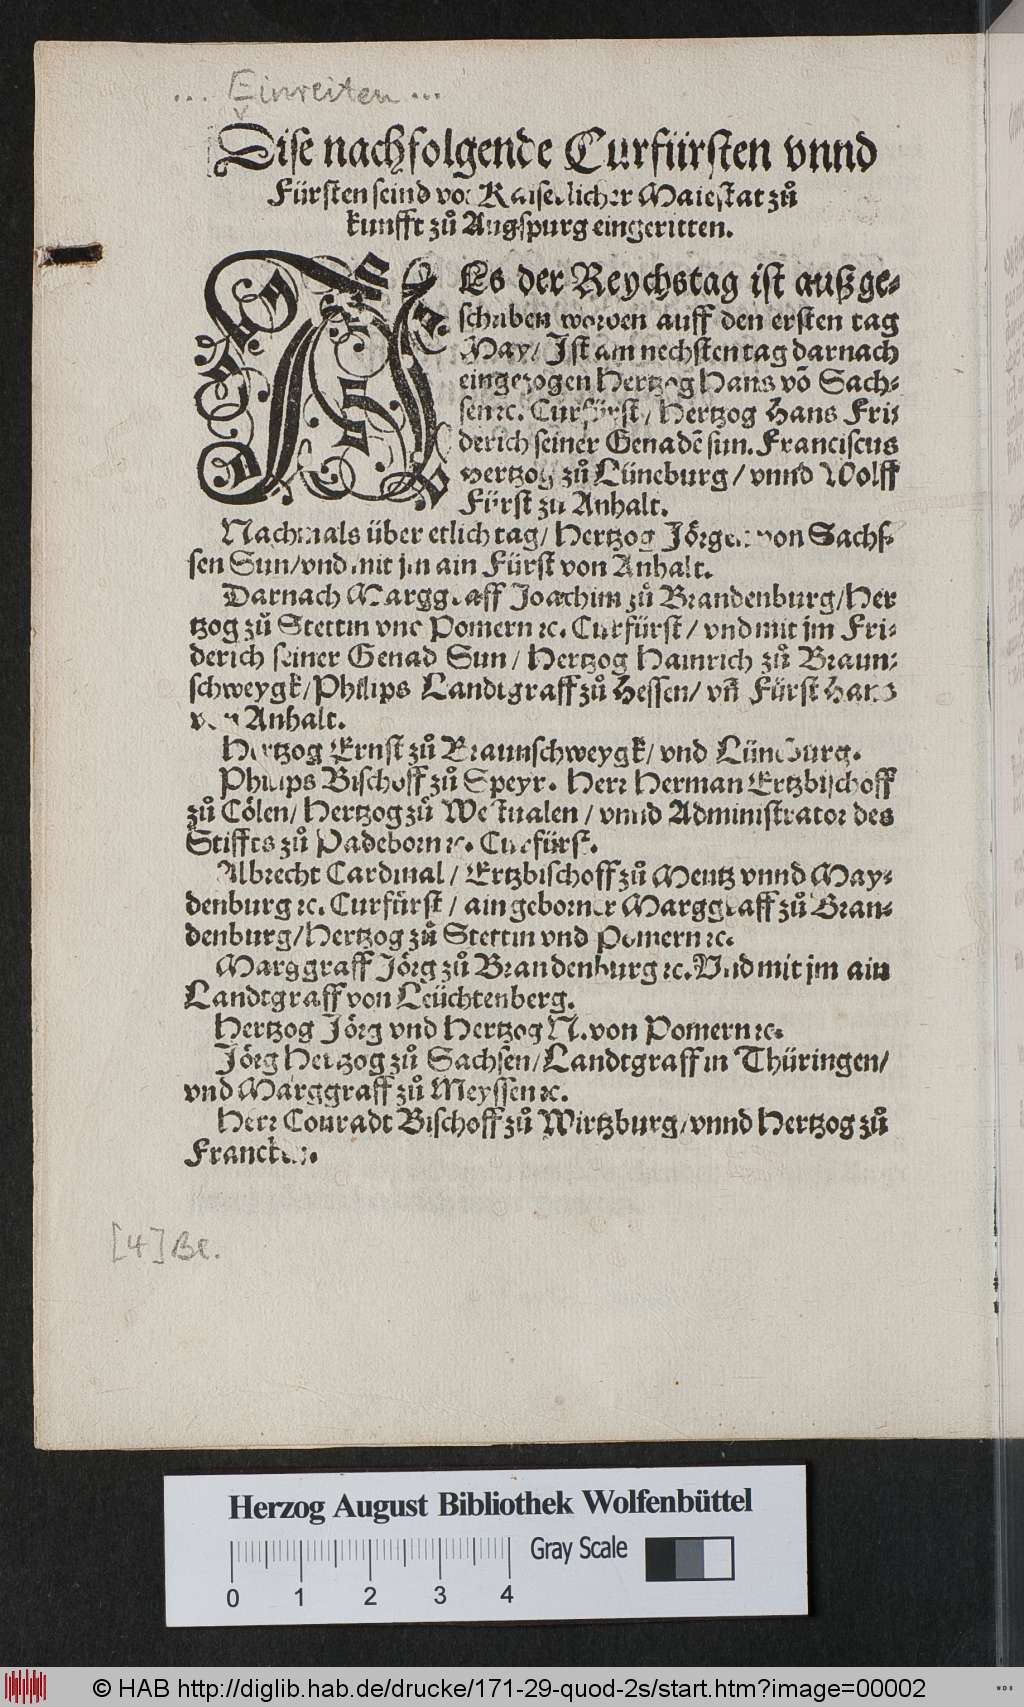 ... Einreiten ...
Dise nachfolgende Curfürsten vnnd
Fürsten seind vor Kaiserlicher Maiestat zů
kunfft zů Augspurg eingeritten.
ALs der Reychstag ist außge-
schriben worden auff den ersten tag
May/ Ist am nechsten tag darnach
eingezogen Hertzog Hans võ Sach-
sen ꝛc. Curfürst/ Hertzog Hans Fri
derich seiner Genadẽ sun. Franciscus
Hertzog zů Lüneburg/ vnnd Wolff
Fürst zu Anhalt.
Nachmals über etlich tag/ Hertzog Jörgen von Sachs-
sen Sun/ vnd mit jm ain Fürst von Anhalt.
Darnach Marggraff Joachim zů Brandenburg/ Her
tzog zů Stettin vnd Pomern ꝛc. Curfürst/ vnd mit jm Fri-
derich seiner Genad Sun/ Hertzog Hainrich zů Braun-
schweygk/ Philips Landtgraff zů Hessen/ vñ Fürst Hans
von Anhalt.
Hertzog Ernst zů Braunschweygk/ vnd Lüneburg.
Philips Bischoff zů Speyr. Herr Herman Ertzbischoff
zů Cölen/ Hertzog zů Westualen/ vnnd Administrator des
Stiffts zů Padeborn ꝛc. Curfürst.
Albrecht Cardinal/ Ertzbischoff zů Mentz vnnd May-
denburg ꝛc. Curfürst/ ain geborner Marggraff zů Bran-
denburg/ Hertzog zů Stettin vnd Pomern ꝛc.
Marggraff Jörg zů Brandenburg ꝛc. Vnd mit jm ain
Landtgraff von Leüchtenberg.
Hertzog Jörg vnd Hertzog N. von Pomern ꝛc.
Jörg Hertzog zů Sachsen/ Landtgraff in Thüringen/
vnd Marggraff zů Meyssen ꝛc.
Herr Conradt Bischoff zů Wirtzburg/ vnnd Hertzog zů
Francken.
[4] Bl.
Herzog August Bibliothek Wolfenbüttel
Gray Scale
0 1 2 3 4
© HAB http://diglib.hab.de/drucke/171-29-quod-2s/start.htm?image=00002